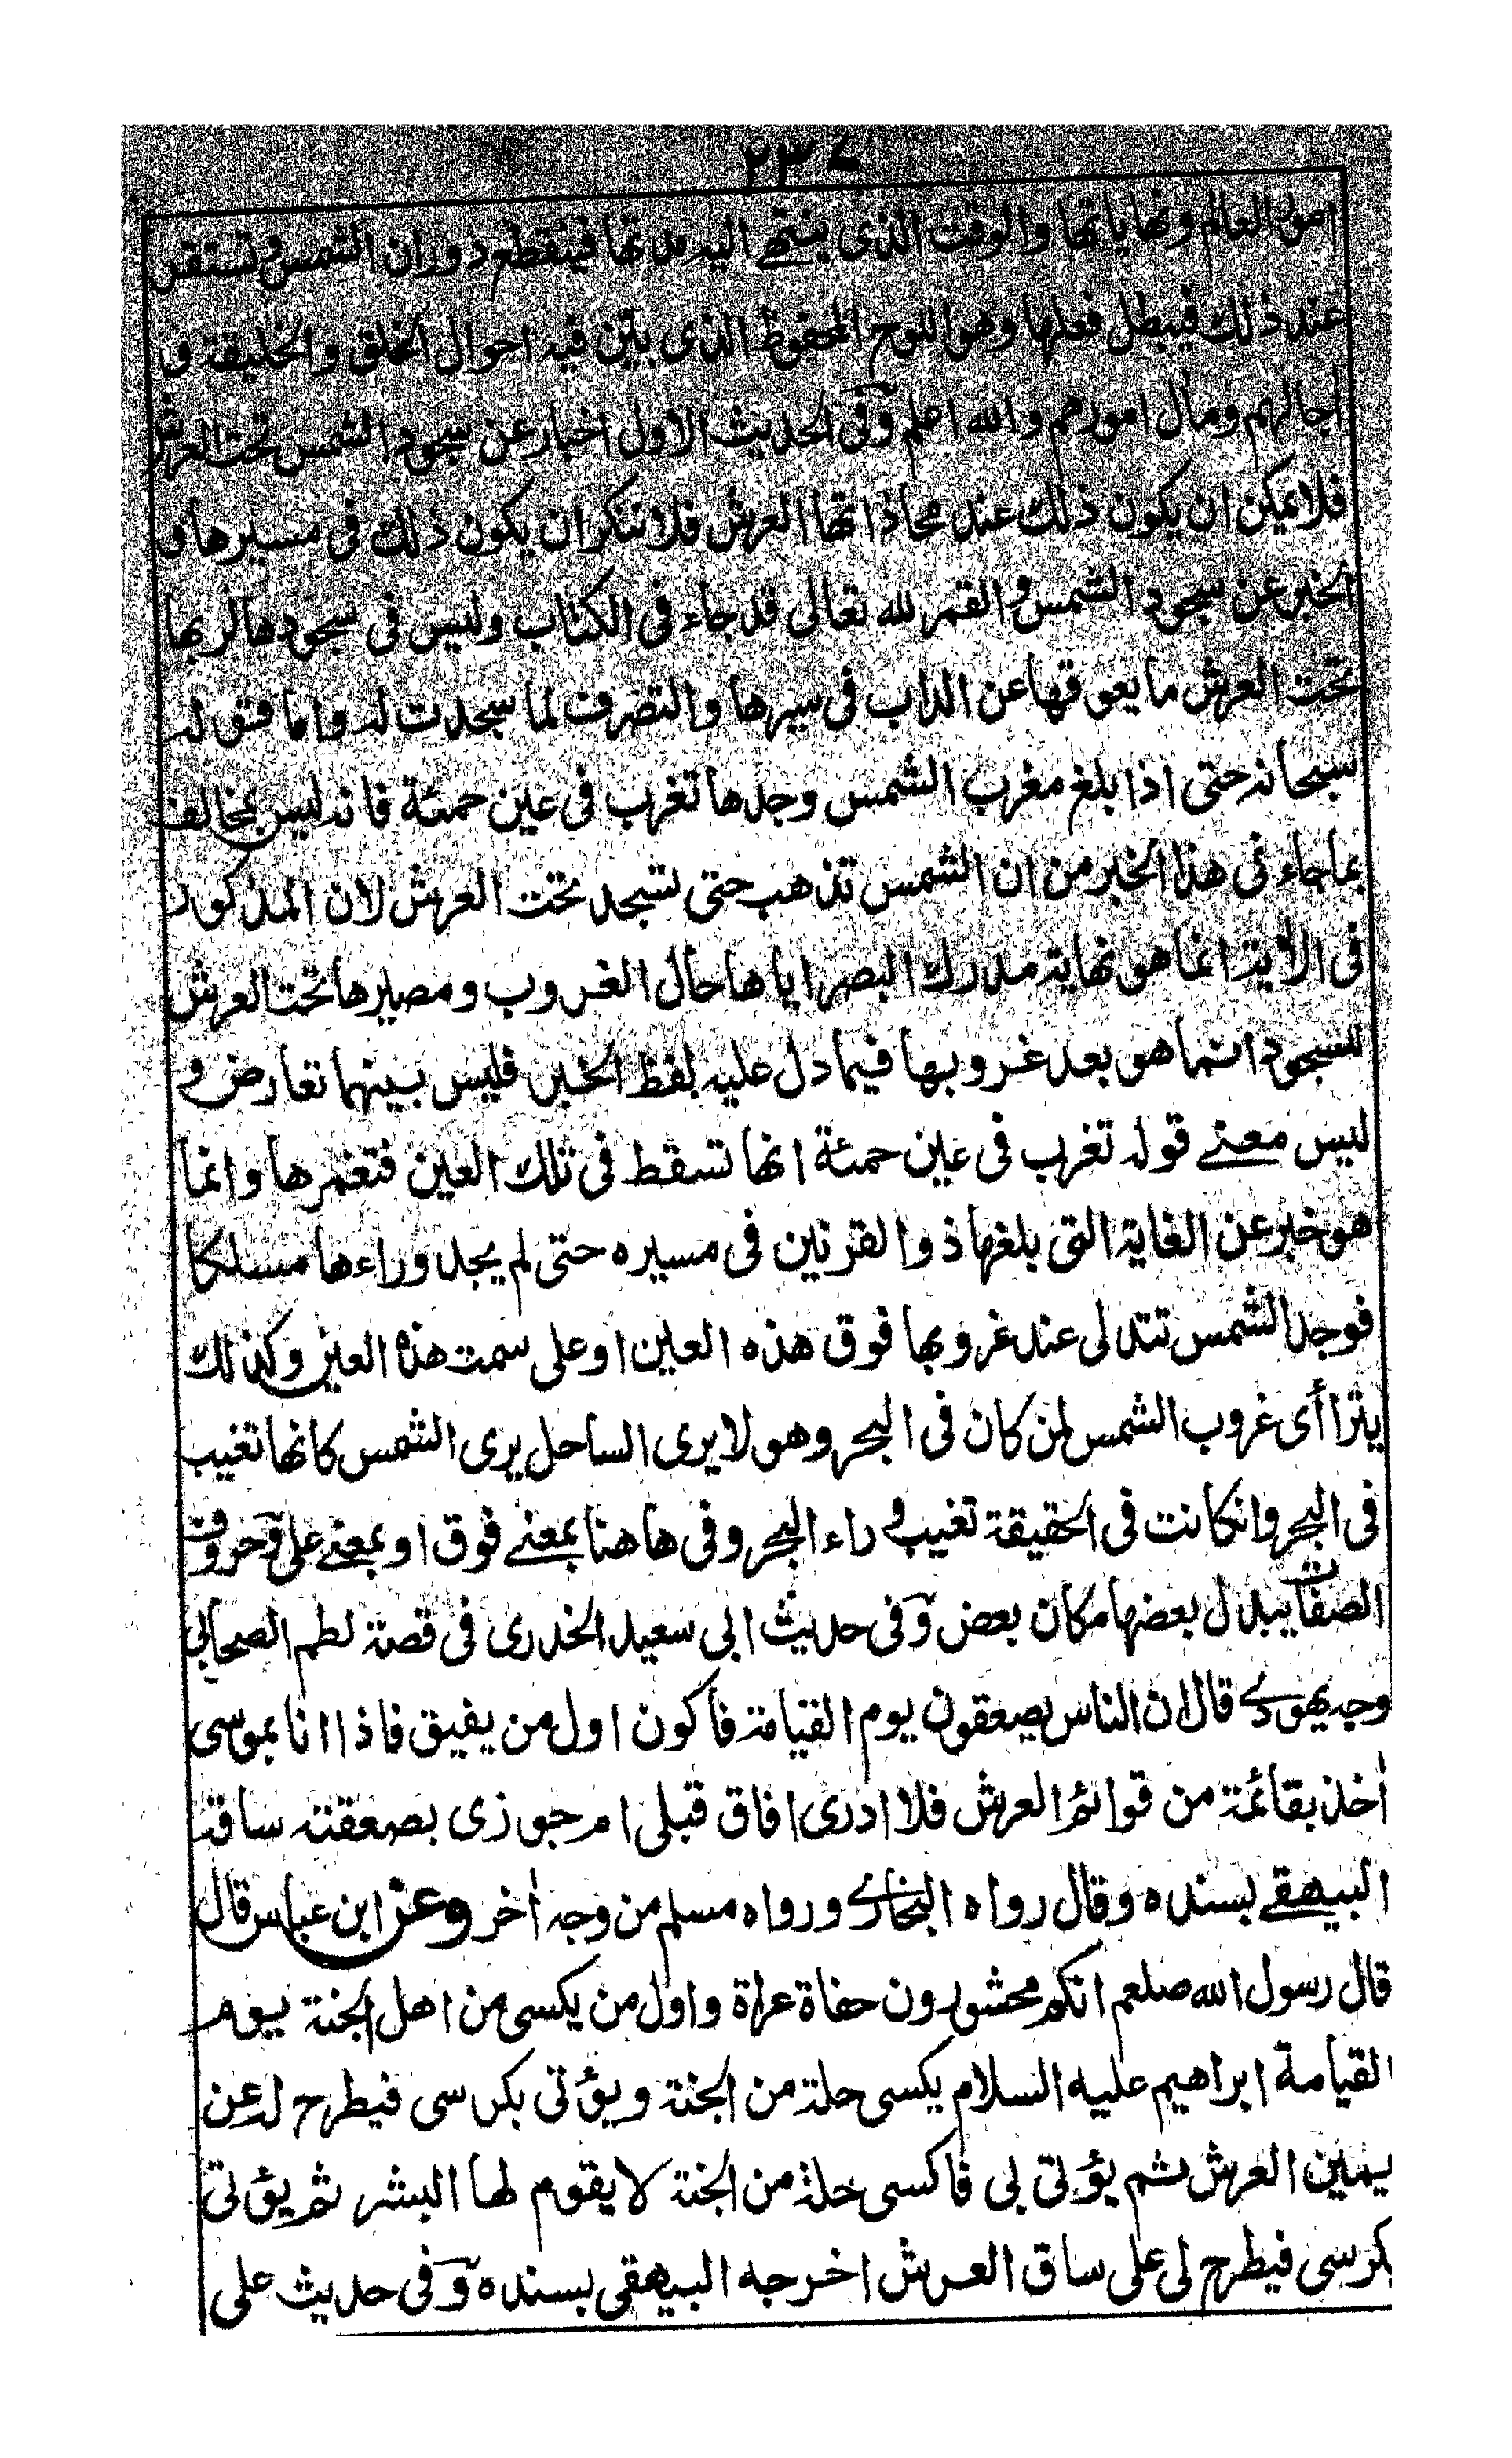 ٢٣٧
امور العالم ونهاياتها والوقت الذى ينتهے اليه مدتها فينقطع دوران الشمس وتستقر
عند ذلك فيبطل فعلها وهو اللوح المحفوظ الذى بين فيه احوال الخلق والخليقة و
اجالهم ومال امورهم والله اعلم وفى الحديث الاول اخبار عن سجود الشمس تحت العرش
فلا يمكن ان يكون ذلك عند محاذاتها العرش فلا ننكر ان يكون ذلك فى مسيرها و
الخبر عن سجود الشمس والقمر لله تعالى قد جاء فى الكتاب وليس فى سجودها لربها
تحت العرش ما يعوقها عن الداب فى سيرها والتصرف لما سجدت له واما قوله
سبحانه حتى اذا بلغ مغرب الشمس وجدها تغرب فى عين حمئة فانه ليس بمخالف
بما جاء فى هذا الخبر من ان الشمس تذهب حتى تسجد تحت العرش لان المذكور
فى الاية انما هو نهاية مدرك البصر اياها حال الغروب ومصيرها تحت العرش
للسجود انما هو بعد غروبها فيما دل عليه لفظ الخبر فليس بينهما تعارض و
ليس معنے قوله تغرب فى عين حمئة انها تسقط فى تلك العين فتغمرها وانما
هو خبر عن الغاية التى بلغها ذو القرنين فى مسيره حتى لم يجد وراءها مسلكا
فوجد الشمس تتدلى عند غروبها فوق هذه العين او على سمت هذه العين وكذلك
يتراأى غروب الشمس لمن كان فى البحر وهو لا يرى الساحل يرى الشمس كانها تغيب
فى البحر وان كانت فى الحقيقة تغيب وراء البحر وفى هاهنا بمعنے فوق او بمعنے على وحروف
الصفات يبدل بعضها مكان بعض وفى حديث ابى سعيد الخدرى فى قصة لطم الصحابى
وجه يهودے قال ان الناس يصعقون يوم القيامة فأكون اول من يفيق فاذا انا بموسى
أخذ بقائمة من قوائم العرش فلا ادرى افاق قبلى ام جوزى بصعقته ساقه
البيهقے بسنده وقال رواه البخارے ورواه مسلم من وجه أخر وعن ابن عباس قال
قال رسول الله صلعم انكم محشورون حفاة عراة واول من يكسى من اهل الجنة يوم
القيامة ابراهيم عليه السلام يكسى حلة من الجنة ويؤتى بكرسى فيطرح له عن
يمين العرش ثم يؤتى بى فأكسى حلة من الجنة لا يقوم لها البشر ثم يؤتى
بكرسى فيطرح لى على ساق العرش اخرجه البيهقى بسنده وفى حديث على